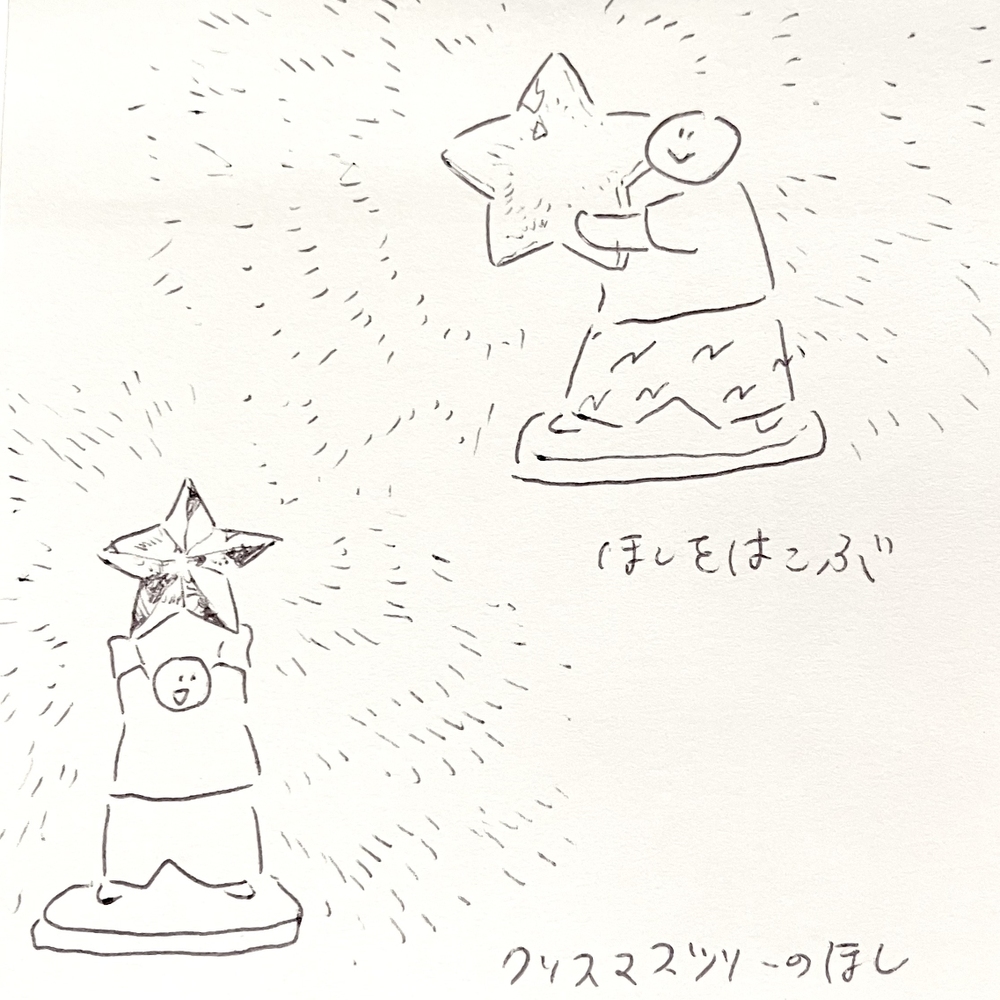 ほしをはこぶ
クリスマスツリーのほし